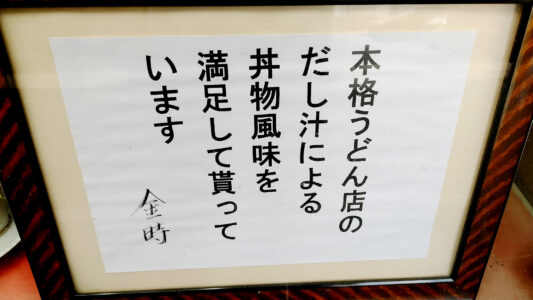 本格うどん店の
だし汁による
丼物風味を
満足して貰って
います
金時